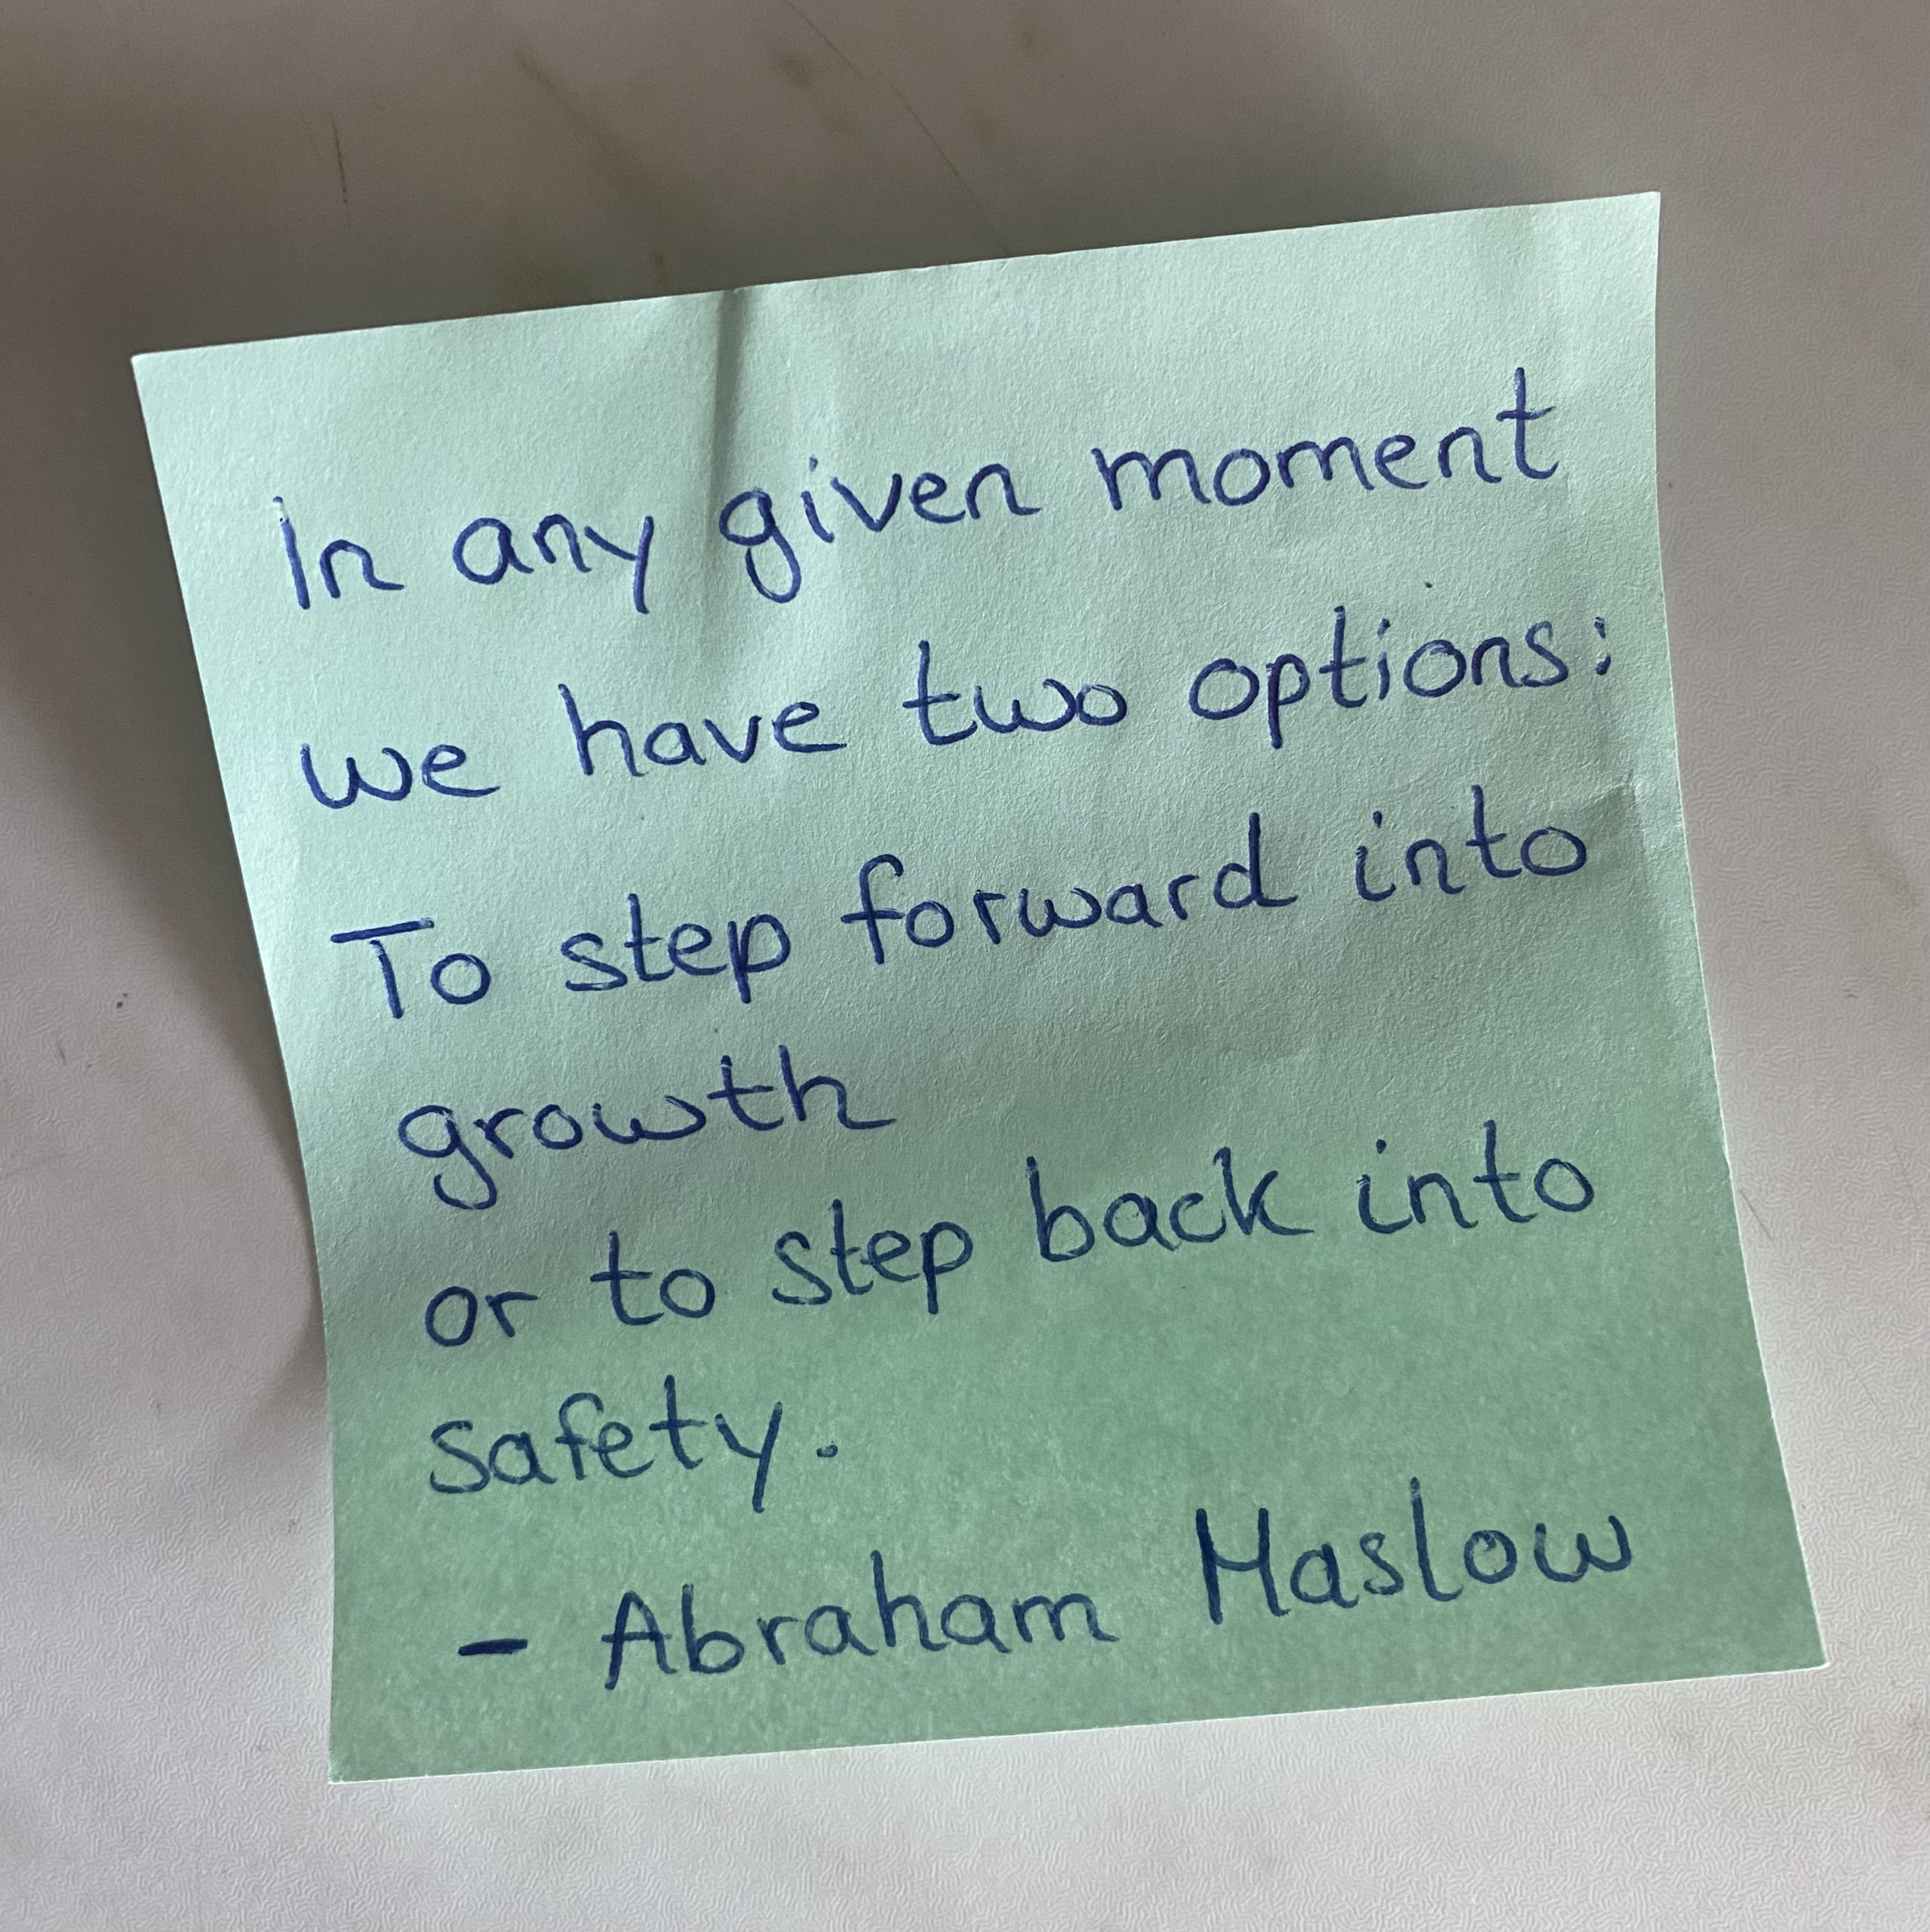 In any given moment
we have two options:
To step forward into
growth
or to step back into
safety.
- Abraham Maslow